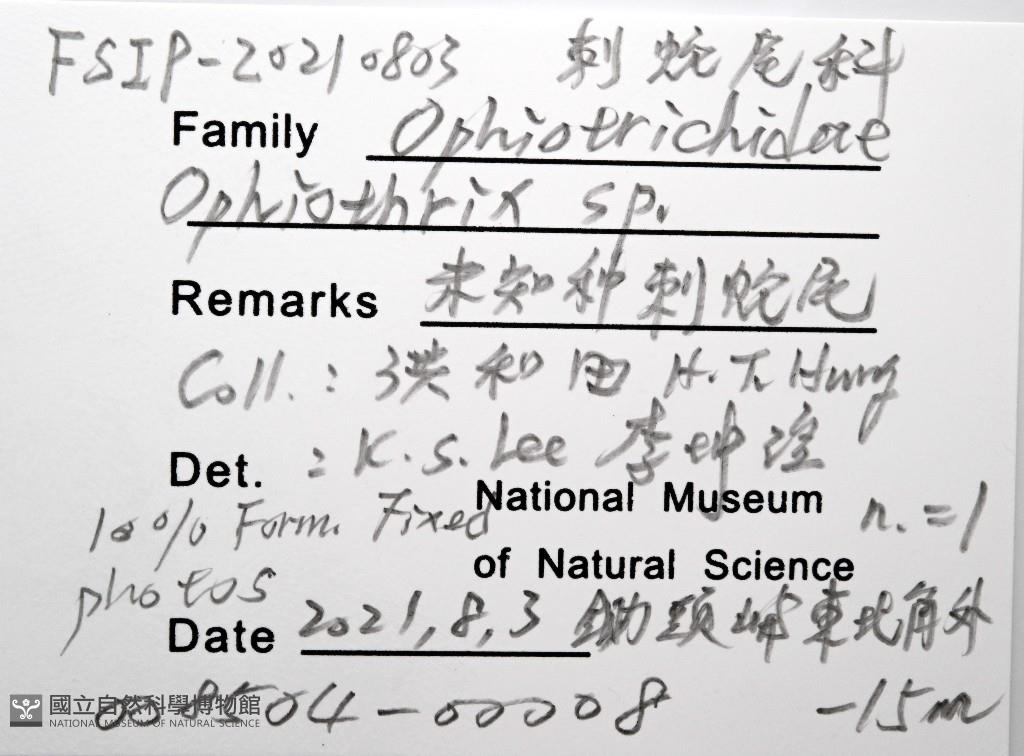 FSIP-20210803 刺蛇尾科
Family Ophiotrichidae
Ophiothrix sp.
Remarks 未知种刺蛇尾
Coll.: 洪和田 H.T. Hung
Det. : K.S. Lee 李坤瑄
10% Form. Fixed National Museum n.=1
photos of Natural Science
Date 2021,8,3 鋤頭嶼東北角外
008504-00008 -15m
國立自然科學博物館
NATIONAL MUSEUM OF NATURAL SCIENCE